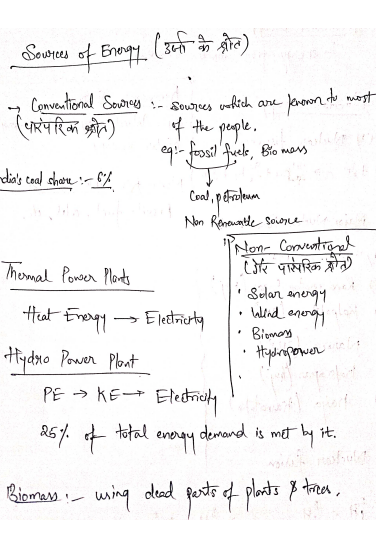 Sources of Energy (उर्जा के श्रोत)
→ Conventional Sources :- sources which are known to most
(पारंपरिक श्रोत) of the people.
eg:- fossil fuels, Bio mass
dia's coal share :- 6%
Coal, petroleum
Non Renewable source
Non-Conventional
(गैर पारंपरिक श्रोत)
• Solar energy
• Wind energy
• Biomass
• Hydropower
Thermal Power Plants
Heat Energy → Electricity
Hydro Power Plant
PE → KE → Electricity
25% of total energy demand is met by it.
Biomass :- using dead parts of plants & trees.